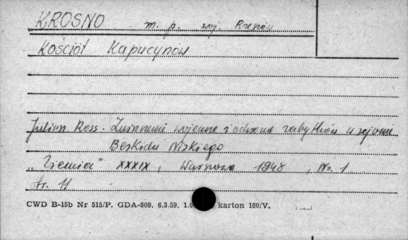 KROSNO m. p. woj. Rzeszów
Kościół Kapucynów
Julian Ross. Zniszczenia wojenne i odbudowa zabytków w rejonie
Beskidu Niskiego
„Ziemia" XXXIX, Warszawa 1948, Nr. 1
str. 11
CWD B-15b Nr 515/P. GDA-809. 6.3.59. karton 180/V.